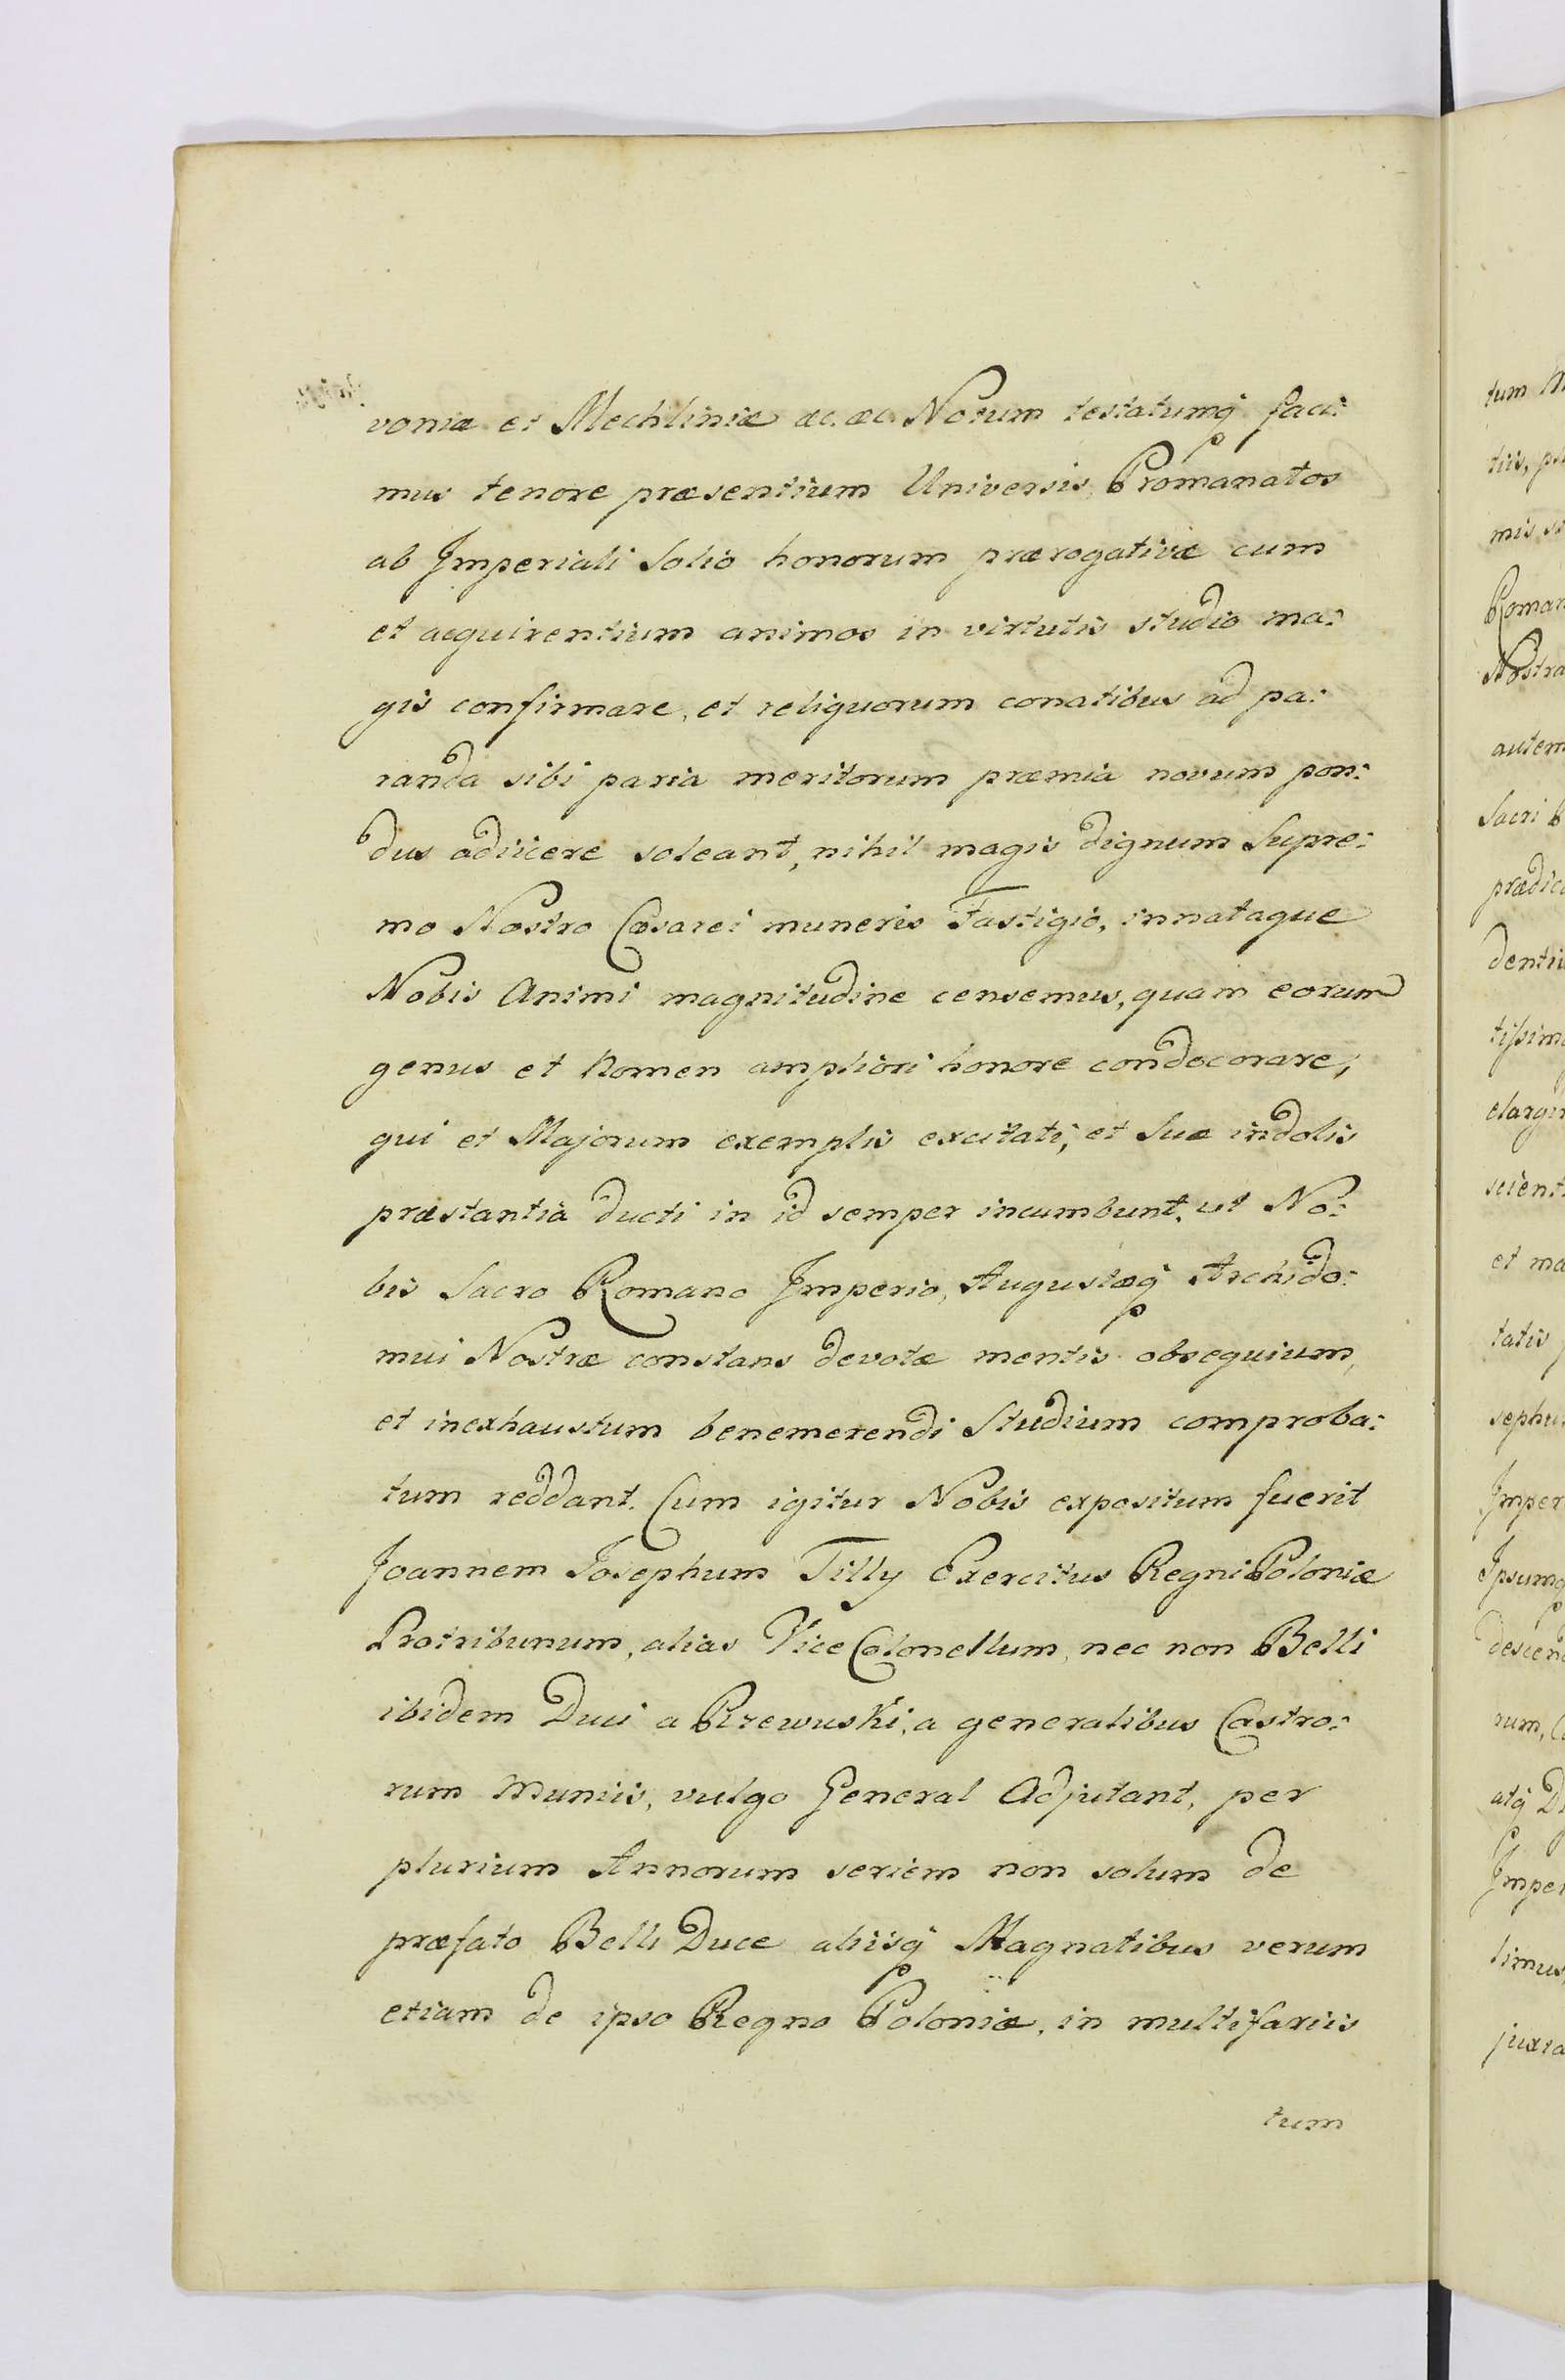 voniæ et Mechliniæ &c. &c. Notum testatumq́ faci:
mus tenore præsentium Universis, Promanatos
ab Imperiali Solio honorum prærogativæ cum
et acquirentium animos in virtutis studio ma:
gis confirmare, et reliquorum conatibus ad pa:
randa sibi paria meritorum præmia novum pon:
dus adiicere soleant, nihil magis dignum Supre:
mo Nostro Cæsarei muneris Fastigio, innataque
Nobis Animi magnitudine censemus, quam eorum
genus et Nomen ampliori honore condecorare,
qui et Majorum exemplis excitati, et Suæ indolis
præstantiâ ducti in id semper incumbunt, ut No:
bis Sacro Romano Imperio, Augustæq́ Archido:
mui Nostræ constans devotæ mentis obsequium,
et inexhaustum benemerendi Studium comproba:
tum reddant. Cum igitur Nobis expositum fuerit
Joannem Josephum Tilly Exercitus Regni Poloniæ
Protribunum, alias Vice Colonellum, nec non Belli
ibidem Duci a Rzewuski, a generalibus Castro:
rum Muniis, vulgo General Adjutant, per
plurium Annorum seriem non solum de
præfato Belli Duce aliisq́ Magnatibus verum
etiam de ipso Regno Poloniæ, in multifariis
tum
tum
tiis,
mis
Roman
Nostra
autem
Sacri
prædic
dentii
tissim
elargi
scient
et ma
tatis
sephu
Imper
Ipsumq́
descen
rum,
atq́ D
Imper
limus
juxta